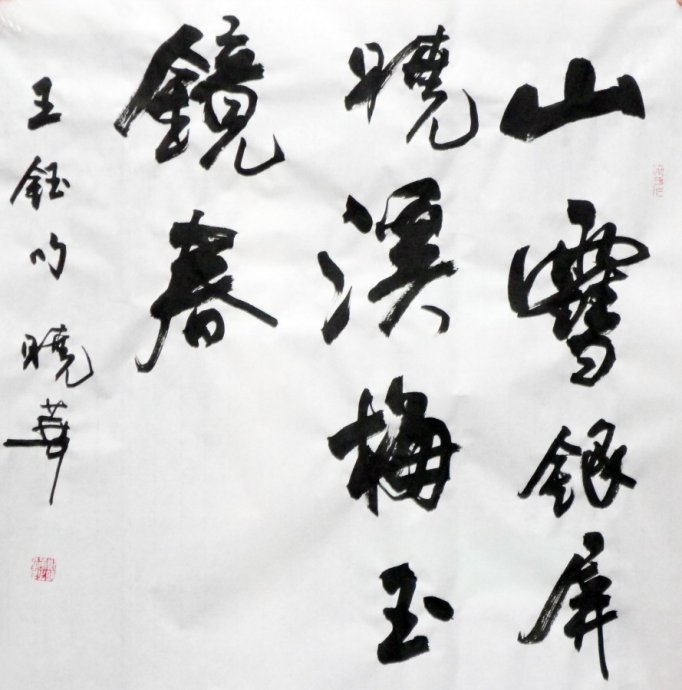 山雪銀屏
曉溪梅玉
鏡春
王鈺 曉華